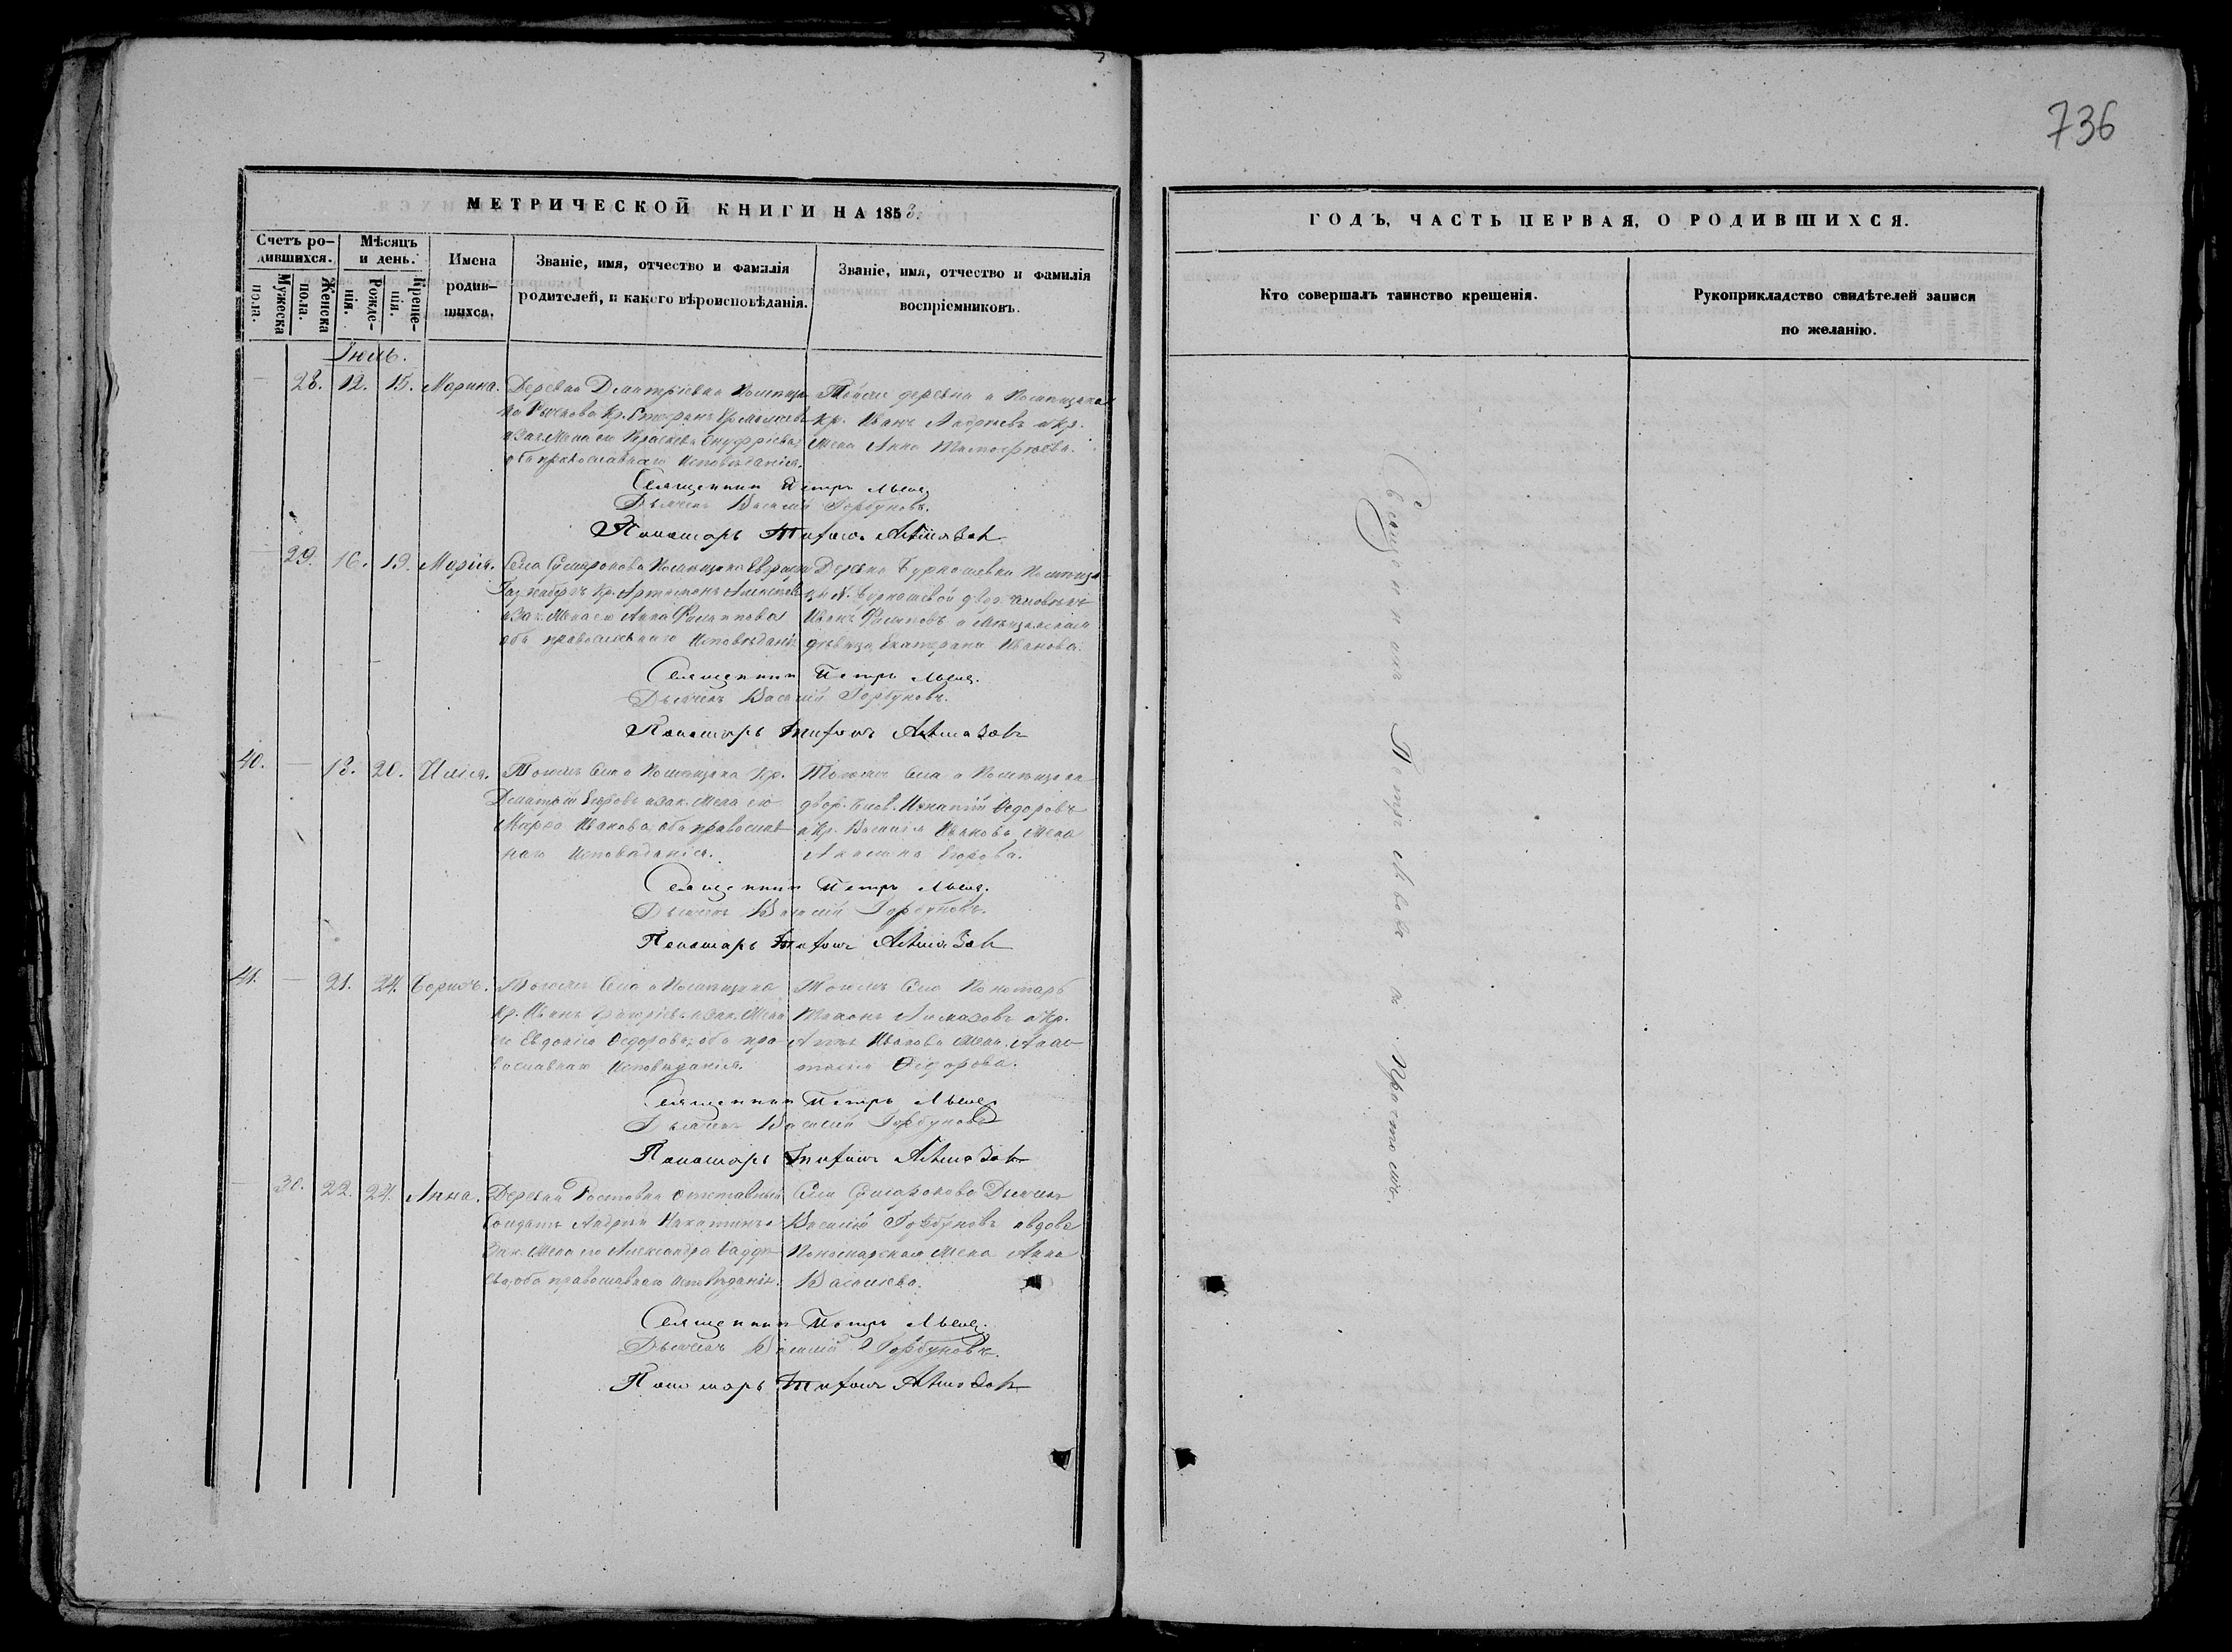 736
МЕТРИЧЕСКОЙ КНИГИ НА 1853.
Счетъ ро-
дившихся.
Мужеска
пола.
Женска
пола.
Мѣсяцъ
и день.
Рожде-
нія.
Креще-
нія.
Имена
родив-
шихся.
Званіе, имя, отчество и фамилія
родителей, и какого вѣроисповѣданія.
Званіе, имя, отчество и фамилія
воспріемниковъ.
Іюль.
28. 12. 15. Марина.
Деревни Дмитріевки Помѣщи
Кр.
его Параскева Онуфріева,
оба православнаго Исповѣданія.
Тойже деревни и Помѣщика
кр. Иванъ Андреевъ и кр.
жена Анна Тимофеева.
Священникъ Петръ Львовъ
Дьячекъ Василій Горбуновъ.
Пономарь Тихонъ Алмазовъ
29. 16. 19. Марія.
Села Сумарокова Помѣщика
Кр. Артамонъ
и Зак. Жена его Анна Филиппова
оба православнаго Исповѣданія
Деревни Бурнашевки Помѣщи-
цы Бурнашевой двор. человѣкъ
Иванъ Филиповъ и
дѣвица Екатерина Иванова.
Священникъ Петръ Львовъ.
Дьячекъ Василій Горбуновъ.
Пономарь Тихонъ Алмазовъ
40. — 18. 20. Илія.
Тогожъ Села и Помѣщика Кр.
Дмитрій Егоровъ и Зак. Жена его
Марѳа Иванова, оба православ-
наго Исповѣданія.
Тогожъ Села и Помѣщика
двор. Челов. Игнатій Ѳедоровъ
и Кр. Иванова Жена
Акилина Егорова.
Священникъ Петръ Львовъ.
Дьячекъ Василій Горбуновъ.
Пономарь Тихонъ Алмазовъ
41. — 21. 24. Борисъ.
Тогожъ Села и Помѣщика
Кр. Иванъ и Зак. Жена
его Евдокія Ѳедорова, оба пра-
вославнаго Исповѣданія.
Тогожъ Села Пономарь
Тихонъ Алмазовъ и Кр.
Иванова Жена Анас-
тасія Ѳедорова.
Священникъ Петръ Львовъ
Дьячекъ Василій Горбуновъ
Пономарь Тихонъ Алмазовъ
30. 22. 24. Анна.
Деревни Ростовки отставный
Солдатъ Андрей и
Зак. Жена его Александра Ѳадде-
ева, оба православнаго Исповѣданія.
Села Сумарокова Дьячекъ
Василій Горбуновъ и вдова
Пономарская Жена Анна
Васильева.
Священникъ Петръ Львовъ.
Дьячекъ Василій Горбуновъ.
Пономарь Тихонъ Алмазовъ
ГОДЪ, ЧАСТЬ ПЕРВАЯ, О РОДИВШИХСЯ.
Кто совершалъ таинство крещенія.
Рукоприкладство свидѣтелей записи
по желанію.
Священникъ Петръ Львовъ съ Причтомъ.